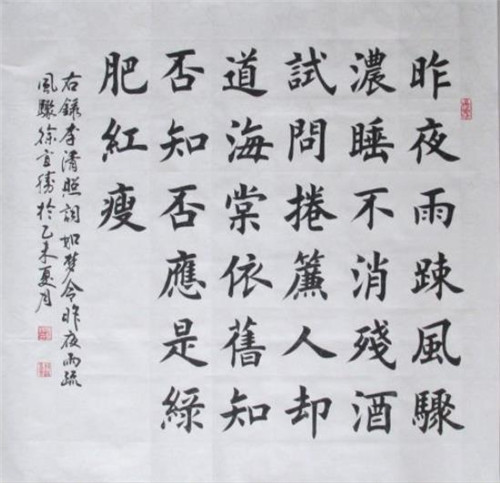 昨夜雨踈風驟
濃睡不消殘酒
試問捲簾人却
道海棠依舊知
否知否應是綠
肥紅瘦
右錄李清照詞如梦令昨夜雨疏
風驟徐於乙未夏月